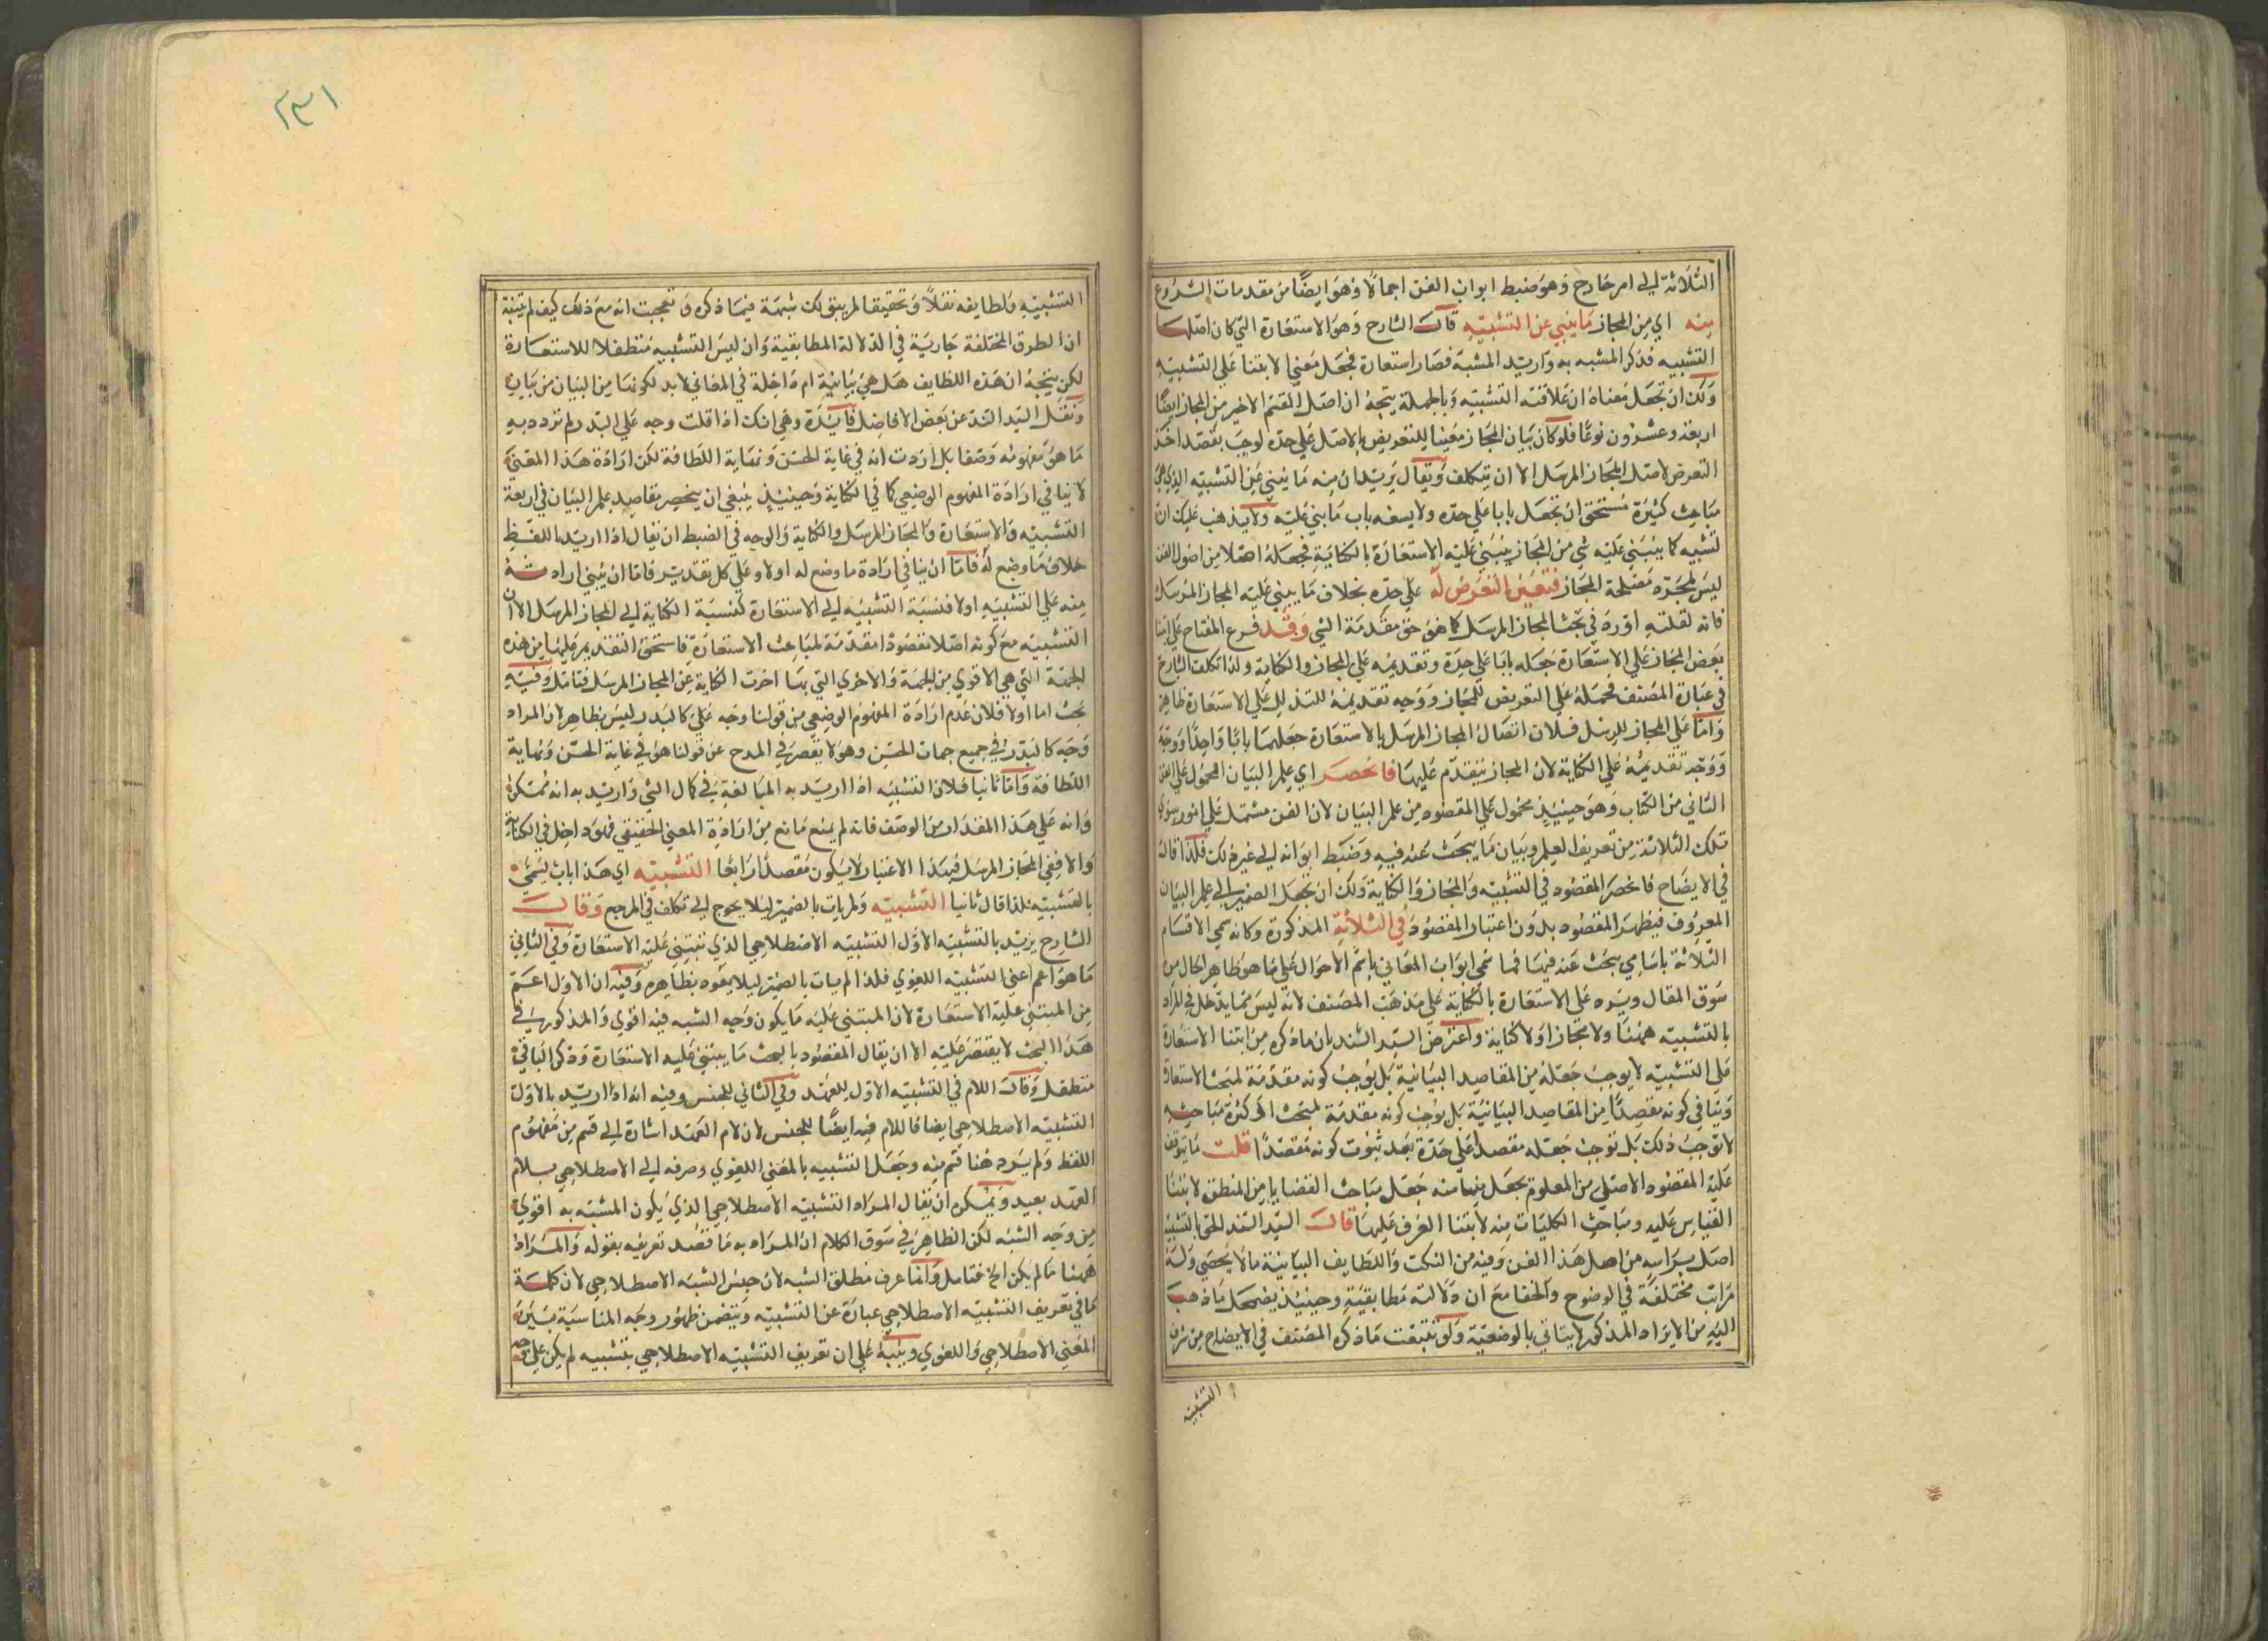 الثلاثة الي امر خارج وهو ضبط ابواب الفن اجمالا وهو ايضا من مقدمات الشروع
منه اي من المجاز ما يبني عن التشبيه قال الشارح وهو الاستعارة التي كان اصلها
التشبيه فذكر المشبه به واريد المشبه فصار استعارة فجعل مبني الابتنا علي التشبيه
ولك ان تجعل معناه ان علاقته التشبيه وبالجملة يتجه ان اصل القسم الاخير من المجاز ايضا
اربعة وعشرون نوعا فلو كان بيان المجاز مغنيا للتعريض بالاصل علي حده لوجب بقصد اخذ
التعرض لاصل المجاز المرسل الا ان يتكلف ويقال يريد ان منه ما يبني عن التشبيه الذي هي
مباحث كثيرة تستحق ان تجعل بابا علي حده ولا يسعه باب ما بني عليه ولا يذهب عليك ان
تشبيه كما يبتني عليه شي من المجاز يبتني عليه الاستعارة بالكناية فجعله اصلا من اصول الفن
ليس لمجرد مصلحة المجاز فتعين التعرض له علي حده بخلاف ما يبني عليه المجاز المرسل
فانه لقلته اورده في بحث المجاز المرسل كما هو حق مقدمة الشي وقد فرع المفتاح علي ابتنا
بعض المجاز علي الاستعارة جعله بابا علي حدة وتقديمه علي المجاز والكناية ولذا اتكلت الشارح
في عبارة المصنف فحمله علي التعريض للمجاز ووجه تقديمه للتذلل علي الاستعارة ظاهر
واما علي المجاز للرسل فلان اتصال المجاز المرسل بالاستعارة جعلهما بابا واحدا ووجه
ووجه تقديمه علي الكناية لان المجاز يتقدم عليها فانحصر اي علم البيان المحمول علي الفن
الثاني من الكتاب وهو حينيذ محمول علي المقصود من علم البيان لان الفن مشتمل علي امور سوي
تلك الثلاثة من تعريف العلم وبيان ما يبحث عنه فيه وضبط ابوابه الي غير ذلك فلذا قال
في الايضاح فانحصر المقصود في التشبيه والمجاز والكناية ولك ان تجعل الضمير الي علم البيان
المعروف فيظهر المقصود بدون اعتبار المقصود في الثلاثة المذكورة وكانه سمي الاقسام
الثلاثة باسامي يبحث عنه فيها كما سمي ابواب المعاني باسم الاحوال علي ما هو ظاهر الحال من
سوق المقال ويرد علي الاستعارة بالكناية علي مذهب المصنف لانه ليس مما يدخل في المراد
بالتشبيه ههنا ولا مجاز اولا كناية واعترض السيد السند بان ما ذكره من ابتنا الاستعارة
علي التشبيه لا يوجب جعله من المقاصد البيانية بل يوجب كونه مقدمة لمبحث الاستعارة
وينافي كونه مقصدا من المقاصد البيانية بل يوجب كونه مقدمة لمبحث اذ كثرة مباحثه
لا توجب ذلك بل توجب جعله مقصدا علي حدة بعد ثبوت كونه مقصدا قلت ما يتوقف
عليه المقصود الاصلي من المعلوم يجعل منها منه جعل مباحث القضايا من المنطق لابتنا
القياس عليه ومباحث الكليات منه لابتنا العرف عليها قال السيد السند الحق بالتشبيه
اصل براسه من اصل هذا الفن وفيه من النكت واللطايف البيانية ما لا يحصي وله
مراتب مختلفة في الوضوح والخفا مع ان دلالته مطابقية وحينيذ يضمحل ما ذهب
اليه من الايراد المذكور لا يتاتي بالوضعية ولو تتبعت ما ذكره المصنف في الايضاح من شرف
التشبيه
٢٣١
التشبيه ولطايفه نقلا وتحقيقا لم يبق لك شبهة فيما ذكره وتعجبت انه مع ذلك كيف لم يتنبه
ان الطرق المختلفة جارية في الدلالة المطابقية وان ليس التشبيه متطفلا للاستعارة
لكن يتجه ان هذه اللطايف هل هي بيانية ام داخلة في المعاني لابد لكونها من البيان من بيان
ونقل السيد السند عن بعض الافاضل فايدة وهي انك اذا قلت وجه علي البدر لم ترد به
ما هو مفهومه وصفا بل اردت انه في غاية الحسن ونهاية اللطافة لكن ارادة هذا المعني
لا ينافي ارادة المفهوم الوضعي كما في الكناية وحينيذ ينبغي ان ينحصر مقاصد علم البيان في اربعة
التشبيه والاستعارة والمجاز المرسل والكناية والوجه في الضبط ان يقال اذا اريد باللفظ
خلاف ما وضع له فاما ان ينافي ارادة ما وضع له اولا وعلي كل تقدير فاما ان يبني ارادته
منه علي التشبيه اولا فنسبة التشبيه الي الاستعارة كنسبة الكناية الي المجاز المرسل الا ان
التشبيه مع كونه اصلا مقصودا مقدمة لمباحث الاستعارة فاستحق التقديم عليها من هذه
الجهة التي هي الاقوي من الجهة والاخري التي بها اخرت الكناية عن المجاز المرسل فتامل وفيه
بحث اما اولا فلان عدم ارادة المفهوم الوضعي من قولنا وجه علي كالبدر ليس بظاهر لان المراد
وجه كالبدر في جميع جهات الحسن وهو لا يقصر في المدح عن قولنا هو في غاية الحسن ونهاية
اللطافة واما ثانيا فلان التشبيه اذا اريد به المبالغة في كمال الشي واريد به انه ممكن
وانه علي هذا المقدار من الوصف فانه لم يمنع مانع من ارادة المعني الحقيقي فهو داخل في الكناية
والا ففي المجاز المرسل فبهذا الاعتبار لا يكون مقصدا رابعا التشبيه اي هذا باب يسمي
بالتشبيه فلذا قال ثانيا التشبيه ولم يات بالضمير ليلا يحوج الي تكلف في المرجع وقال
الشارح يريد بالتشبيه الاول التشبيه الاصطلاحي الذي تبتني عليه الاستعارة وفي الثاني
ما هو اعم اعني التشبيه اللغوي فلذا لم يات بالضمير ليلا يعود بظاهره وفيه ان الاول اعم
من المبتني عليه الاستعارة لان المبتني عليه ما يكون وجه الشبه فيه اقوي والمذكور في
هذا البحث لا يقتصر عليه الا ان يقال المقصود بالبحث ما يبتني عليه الاستعارة وذكر الباقي
متطفل وقال اللام في التشبيه الاول للعهد وفي الثاني للجنس وفيه انه اذا اريد بالاول
التشبيه الاصطلاحي ايضا فاللام فيه ايضا للجنس لان لام العهد اشارة الي قسم من مفهوم
اللفظ ولم يرد هنا قسم منه وجعل التشبيه بالمعني اللغوي وصرفه الي الاصطلاحي بلام
العهد بعيد ويمكن ان يقال المراد التشبيه الاصطلاحي الذي يكون المشبه به اقوي
من وجه الشبه لكن الظاهر في سوق الكلام ان المراد به ما قصد تعريفه بقوله والمراد
ههنا ما لم يكن الخ فتامل وانما عرف مطلق الشبه لان جنس الشبه الاصطلاحي لان كلمة
ما في تعريف التشبيه الاصطلاحي عبارة عن التشبيه ويتضمن ظهور وجه المناسبة بين
المعني الاصطلاحي واللغوي وينبه علي ان تعريف التشبيه الاصطلاحي بتشبيه لم يكن علي